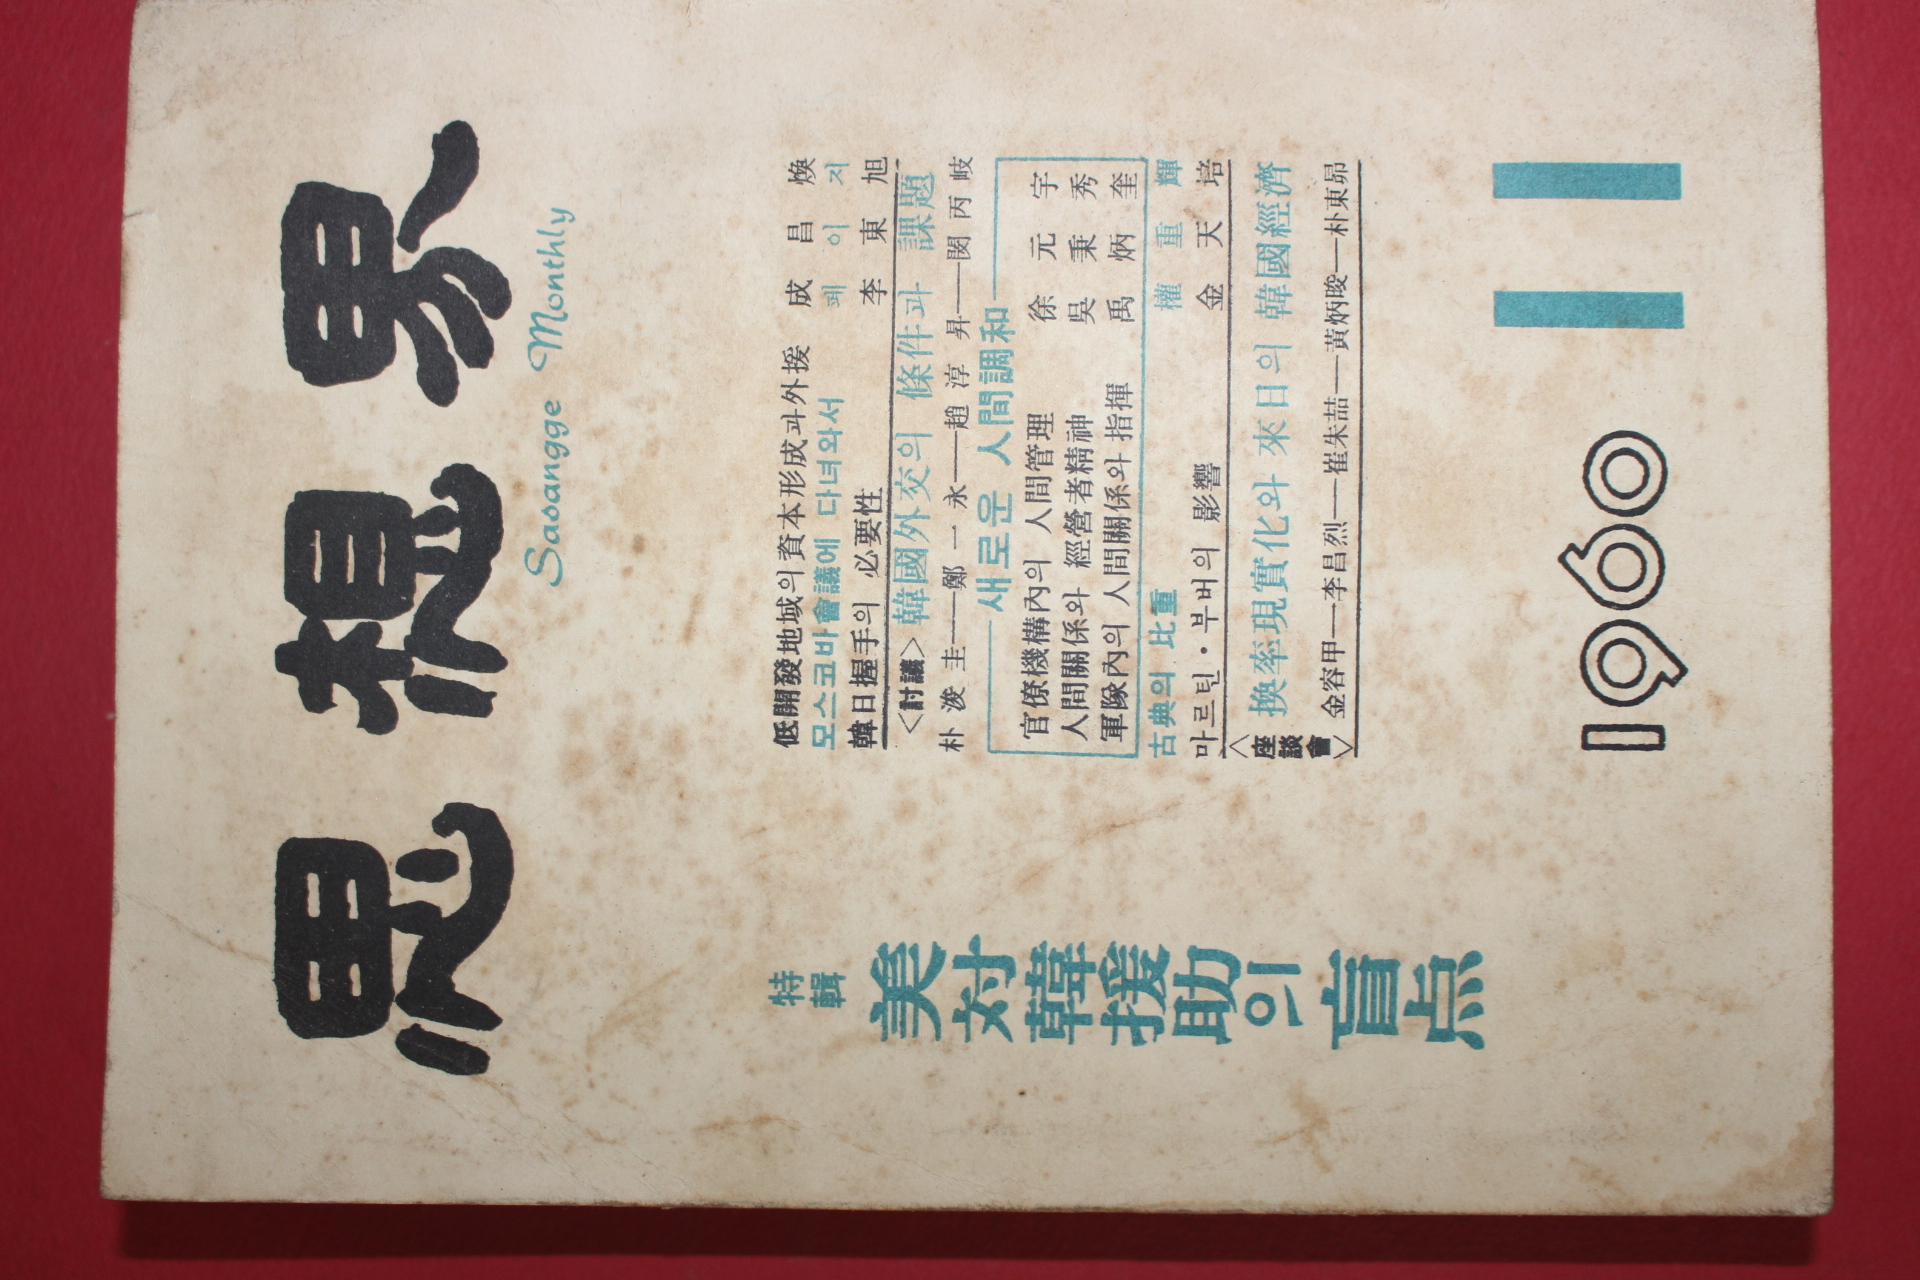 思想界
Sasangge Monthly
特輯
美対韓援助의 盲点
低開發地域의 資本形成과 外援 成昌煥
모스코바會議에 다녀와서 궤이지
韓日握手의 必要性 李東旭
<討議> 韓國外交의 條件과 課題
朴浚圭—鄭一永—趙淳昇—閔丙岐
새로운 人間調和
官僚機構內의 人間管理 徐元宇
人間關係와 經營者精神 吳秉秀
軍隊內의 人間關係와 指揮 禹炳奎
古典의 比重 權重輝
마르틴·부버의 影響 金天培
<座談會> 換率現實化와 來日의 韓國經濟
金容甲—李昌烈—崔朱喆—黃炳晙—朴東昴
1960
11